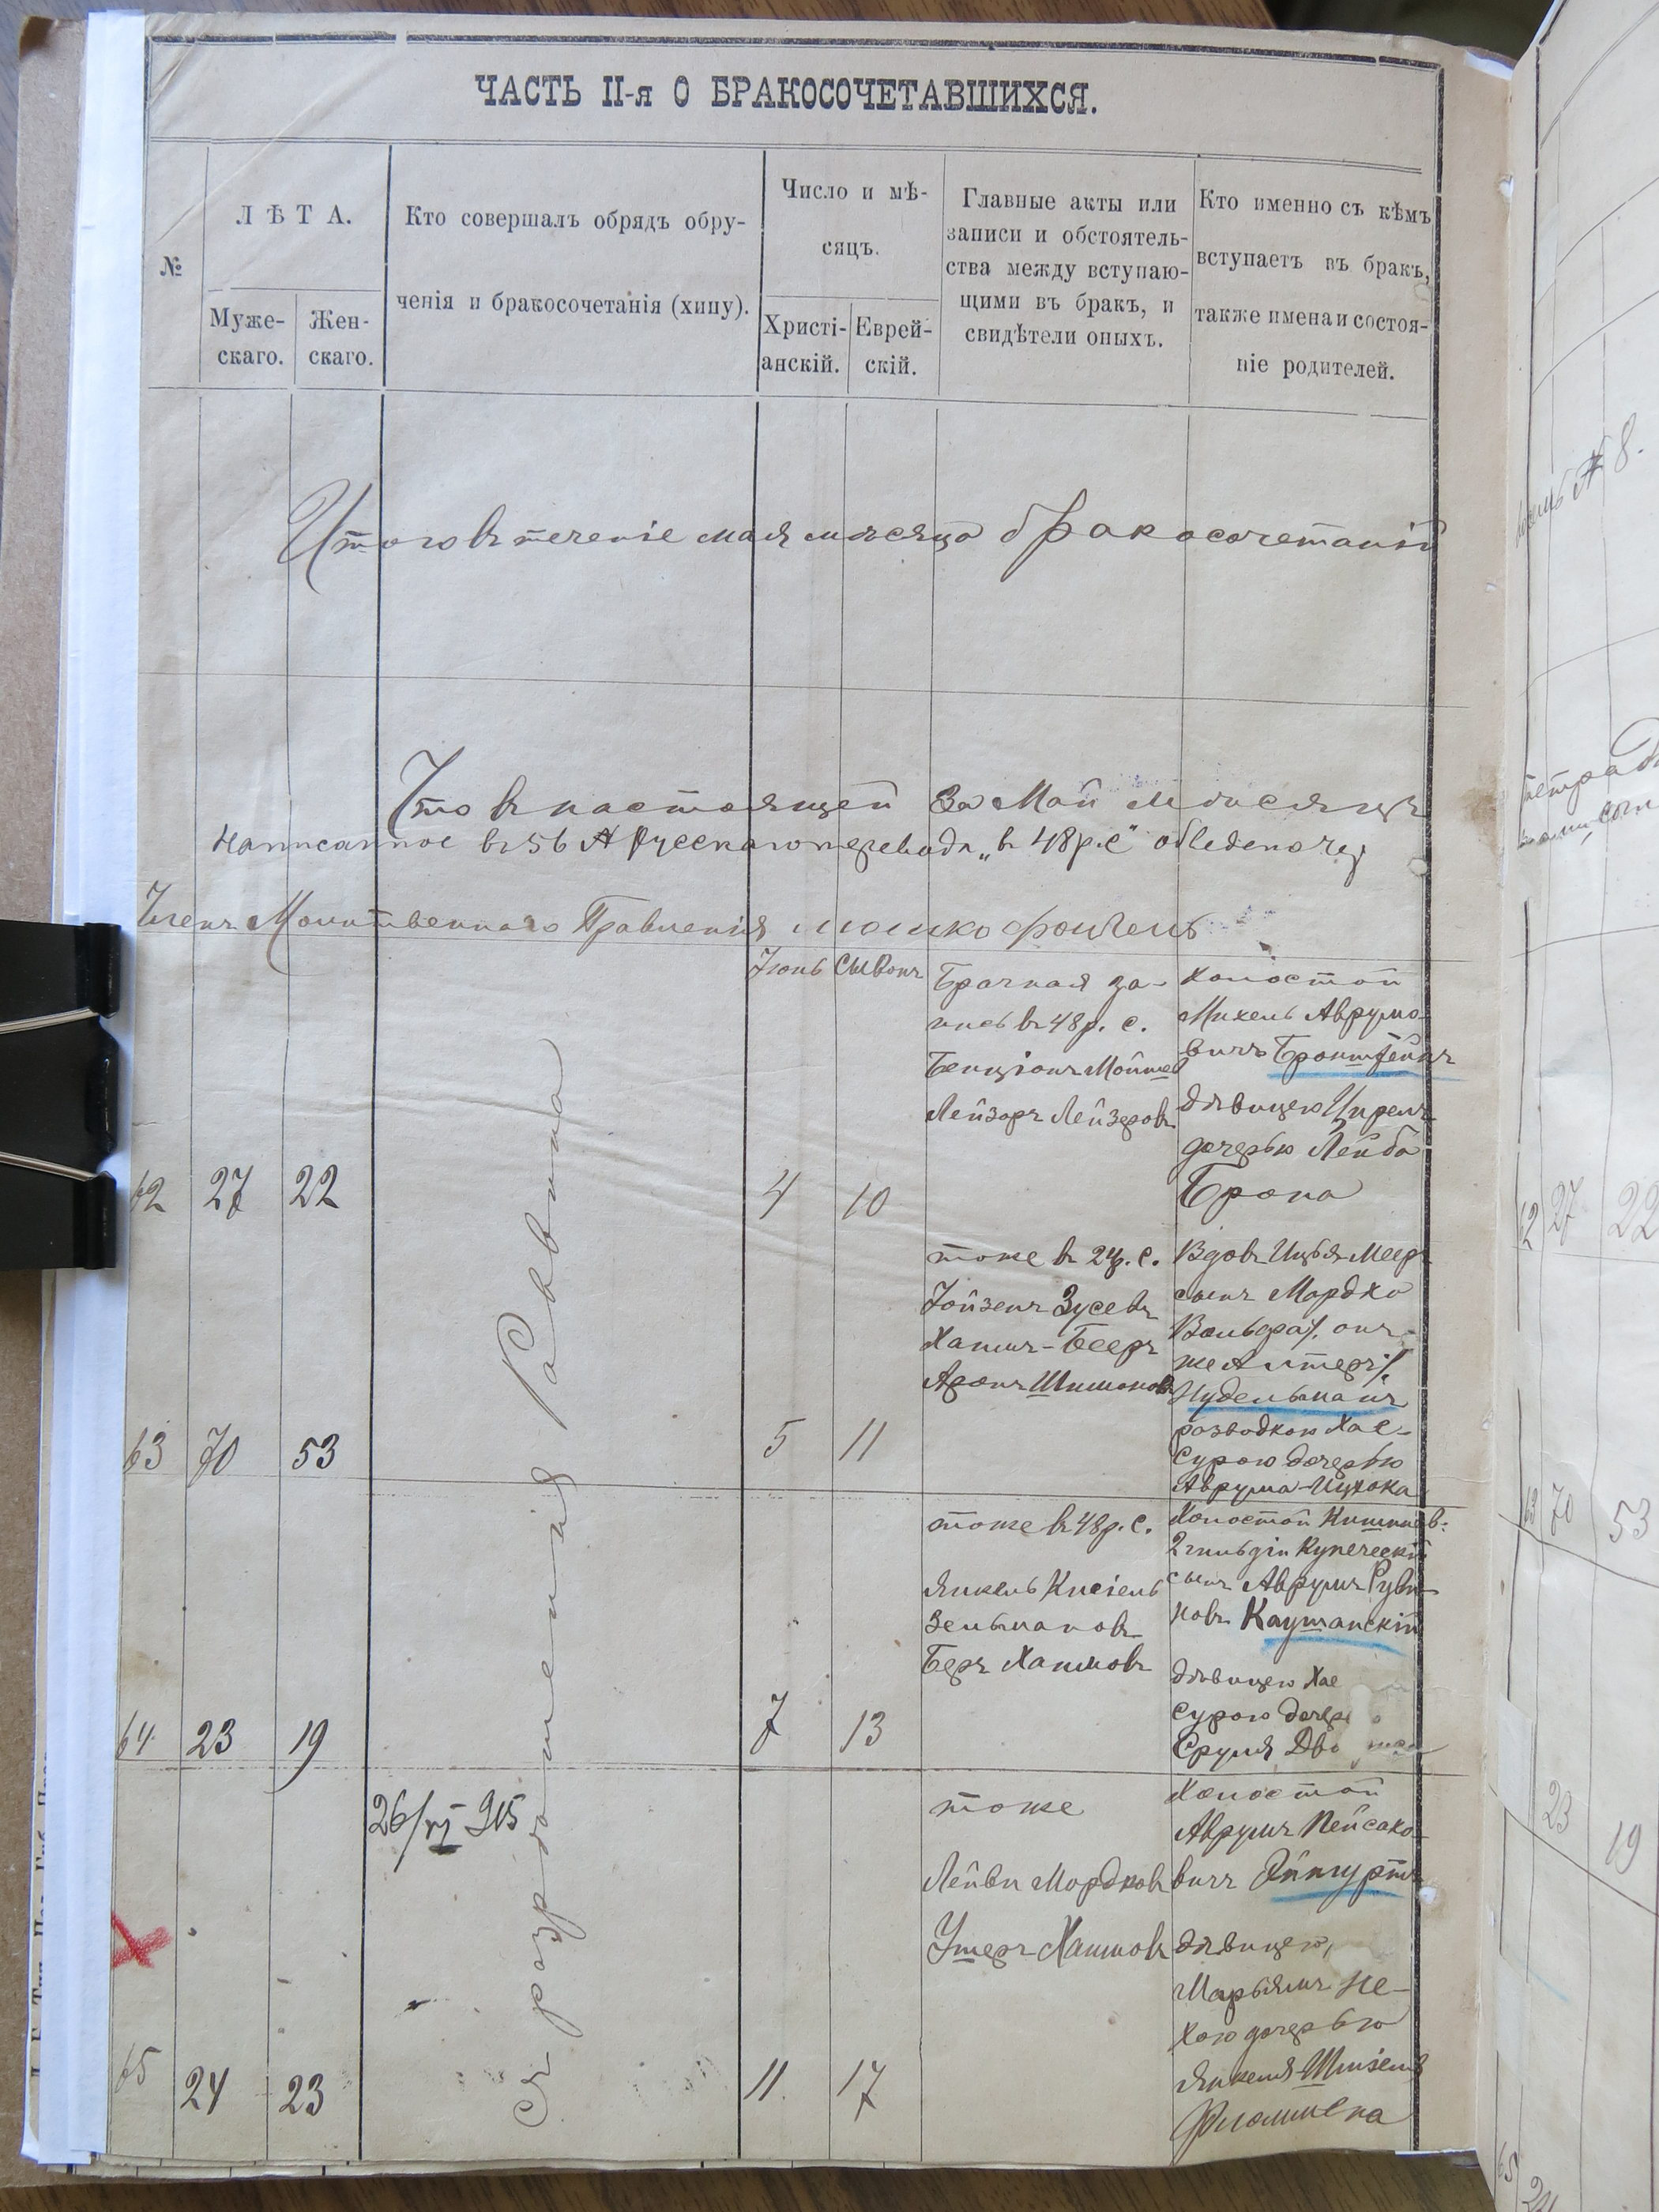 ЧАСТЬ II-я О БРАКОСОЧЕТАВШИХСЯ.
№
ЛѢТА.
Муже-
скаго.
Жен-
скаго.
Кто совершалъ обрядъ обру-
ченія и бракосочетанія (хипу).
Число и мѣ-
сяцъ.
Христі-
анскій.
Еврей-
скій.
Главные акты или
записи и обстоятель-
ства между вступаю-
щими въ бракъ, и
свидѣтели оныхъ.
Кто именно съ кѣмъ
вступаетъ въ бракъ,
также имена и состоя-
ніе родителей.
Итого въ теченіе мая мѣсяца бракосочетаній
Что въ настоящей за Май мѣсяцъ
написанное въ 56 № Русскаго перевода „въ 48 р. с"
Членъ Молитвеннаго Правленія
Съ разрѣшенія Раввина
Іюнь Сывонъ
62 27 22
4 10
Брачная за-
пись въ 48 р. с.
Бенціонъ Мошков
Лейзоръ Лейзеровъ
Холостой
Михель Аврумо-
вичъ Бронштейнъ
дѣвицею Циреля
дочерью Лейба
Брона
63 70 53
5 11
тоже въ 24 р. с.
Іойзепъ Зусевъ
Хаимъ-Бееръ
Аронъ Шимоновъ
Вдовъ Мееръ
сынъ Мордко
Вольфа /. онъ-
же Алтеръ ./
Нудельманъ
разводкою Хае-
Сурою дочерью
Аврума-Ицхока
64 23 19
7 13
тоже въ 48 р. с.
Янкель Кисіель
Зельмановъ
Беръ Хаимовъ
Холостой Кишинев.
2 гильдіи Купеческій
сынъ Аврумъ Руви-
новъ Каушанскій
дѣвицею Хае
Сурою
Сруля
65 24 23
26/VI 915
11. 17
тоже
Лейви Мордковъ
Ушеръ Хаимовъ
Холостой
Аврумъ Пейсахо-
вичъ
дѣвицею,
Марьямъ Не-
хою дочерью
Янкеля-Шміеля
62 27 22
63 70 53
23 19